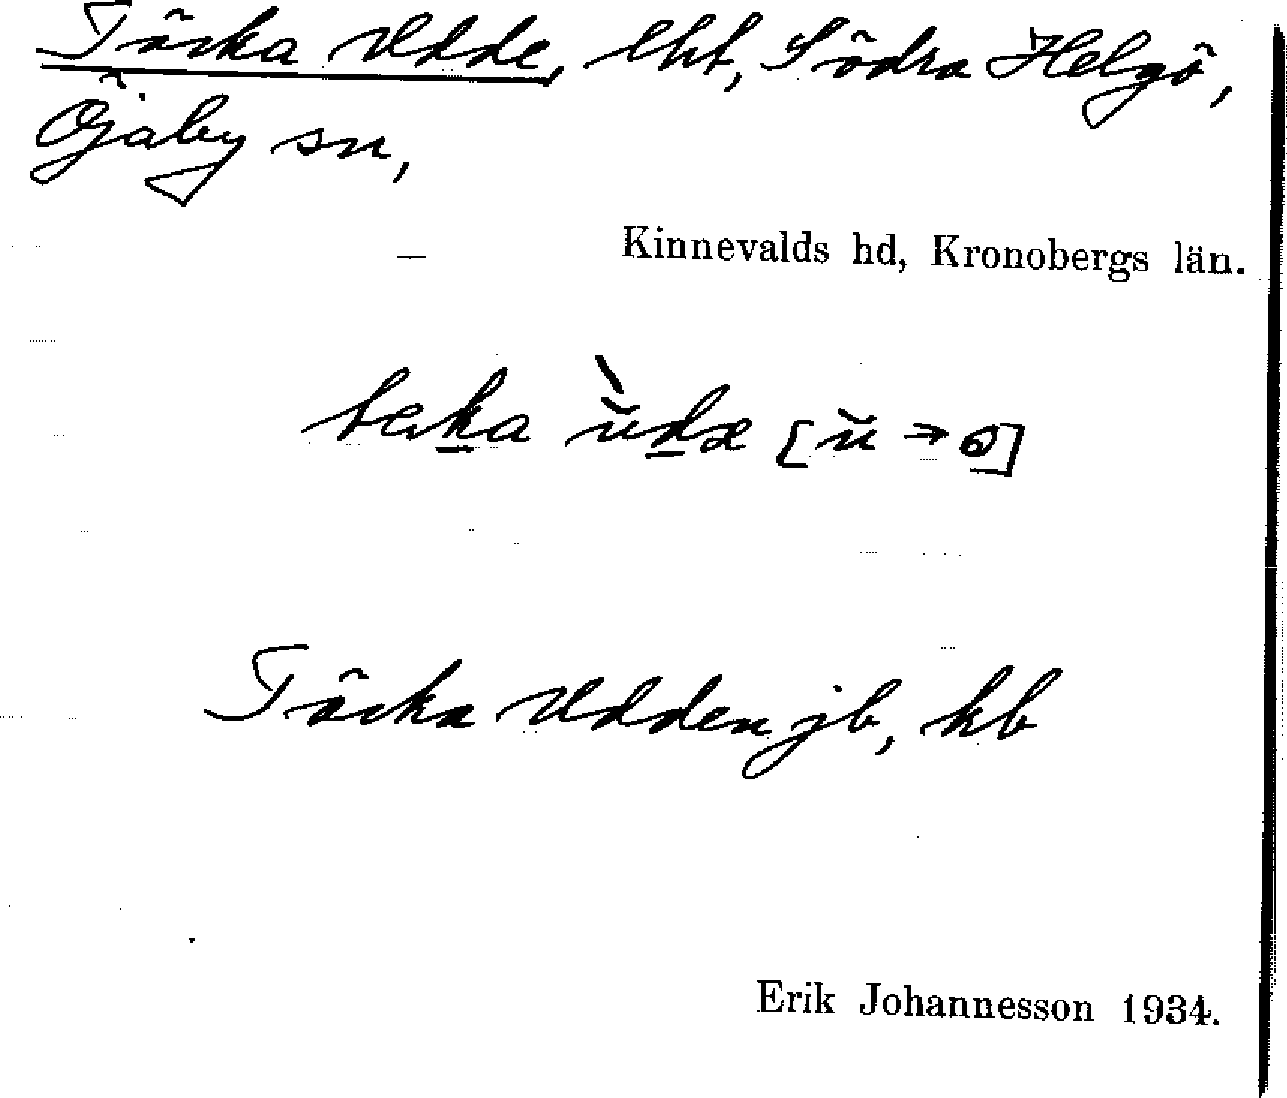 Täcka Udde, lht, Södra Helgö,
Öjaby sn,
Kinnevalds hd, Kronobergs län.
[ŭ → ]
Täcka Udden jb, kb
Erik Johannesson 1934.